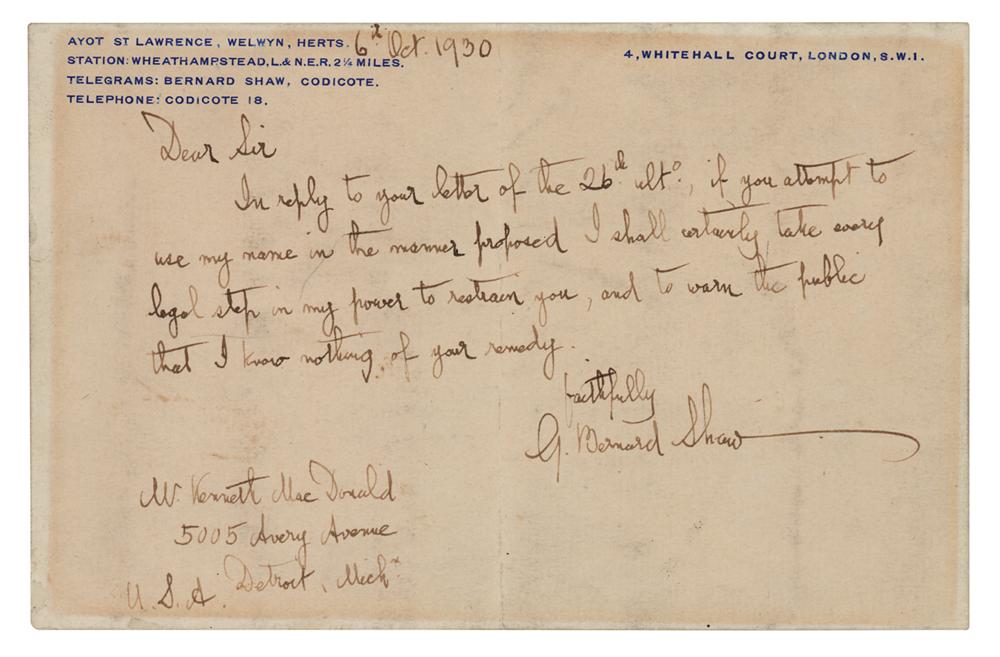 AYOT ST LAWRENCE, WELWYN, HERTS. 6th Oct. 1930
STATION: WHEATHAMPSTEAD, L. & N.E.R. 2¼ MILES.
TELEGRAMS: BERNARD SHAW, CODICOTE.
TELEPHONE: CODICOTE 18.
4, WHITEHALL COURT, LONDON, S.W.1.
Dear Sir
In reply to your letter of the 26th ulto, if you attempt to
use my name in the manner proposed I shall certainly take every
legal step in my power to restrain you, and to warn the public
that I know nothing of your remedy.
faithfully
G. Bernard Shaw
Mr. Kennett Mac Donald
5005 Avery Avenue
Detroit, Mich.
U.S.A.